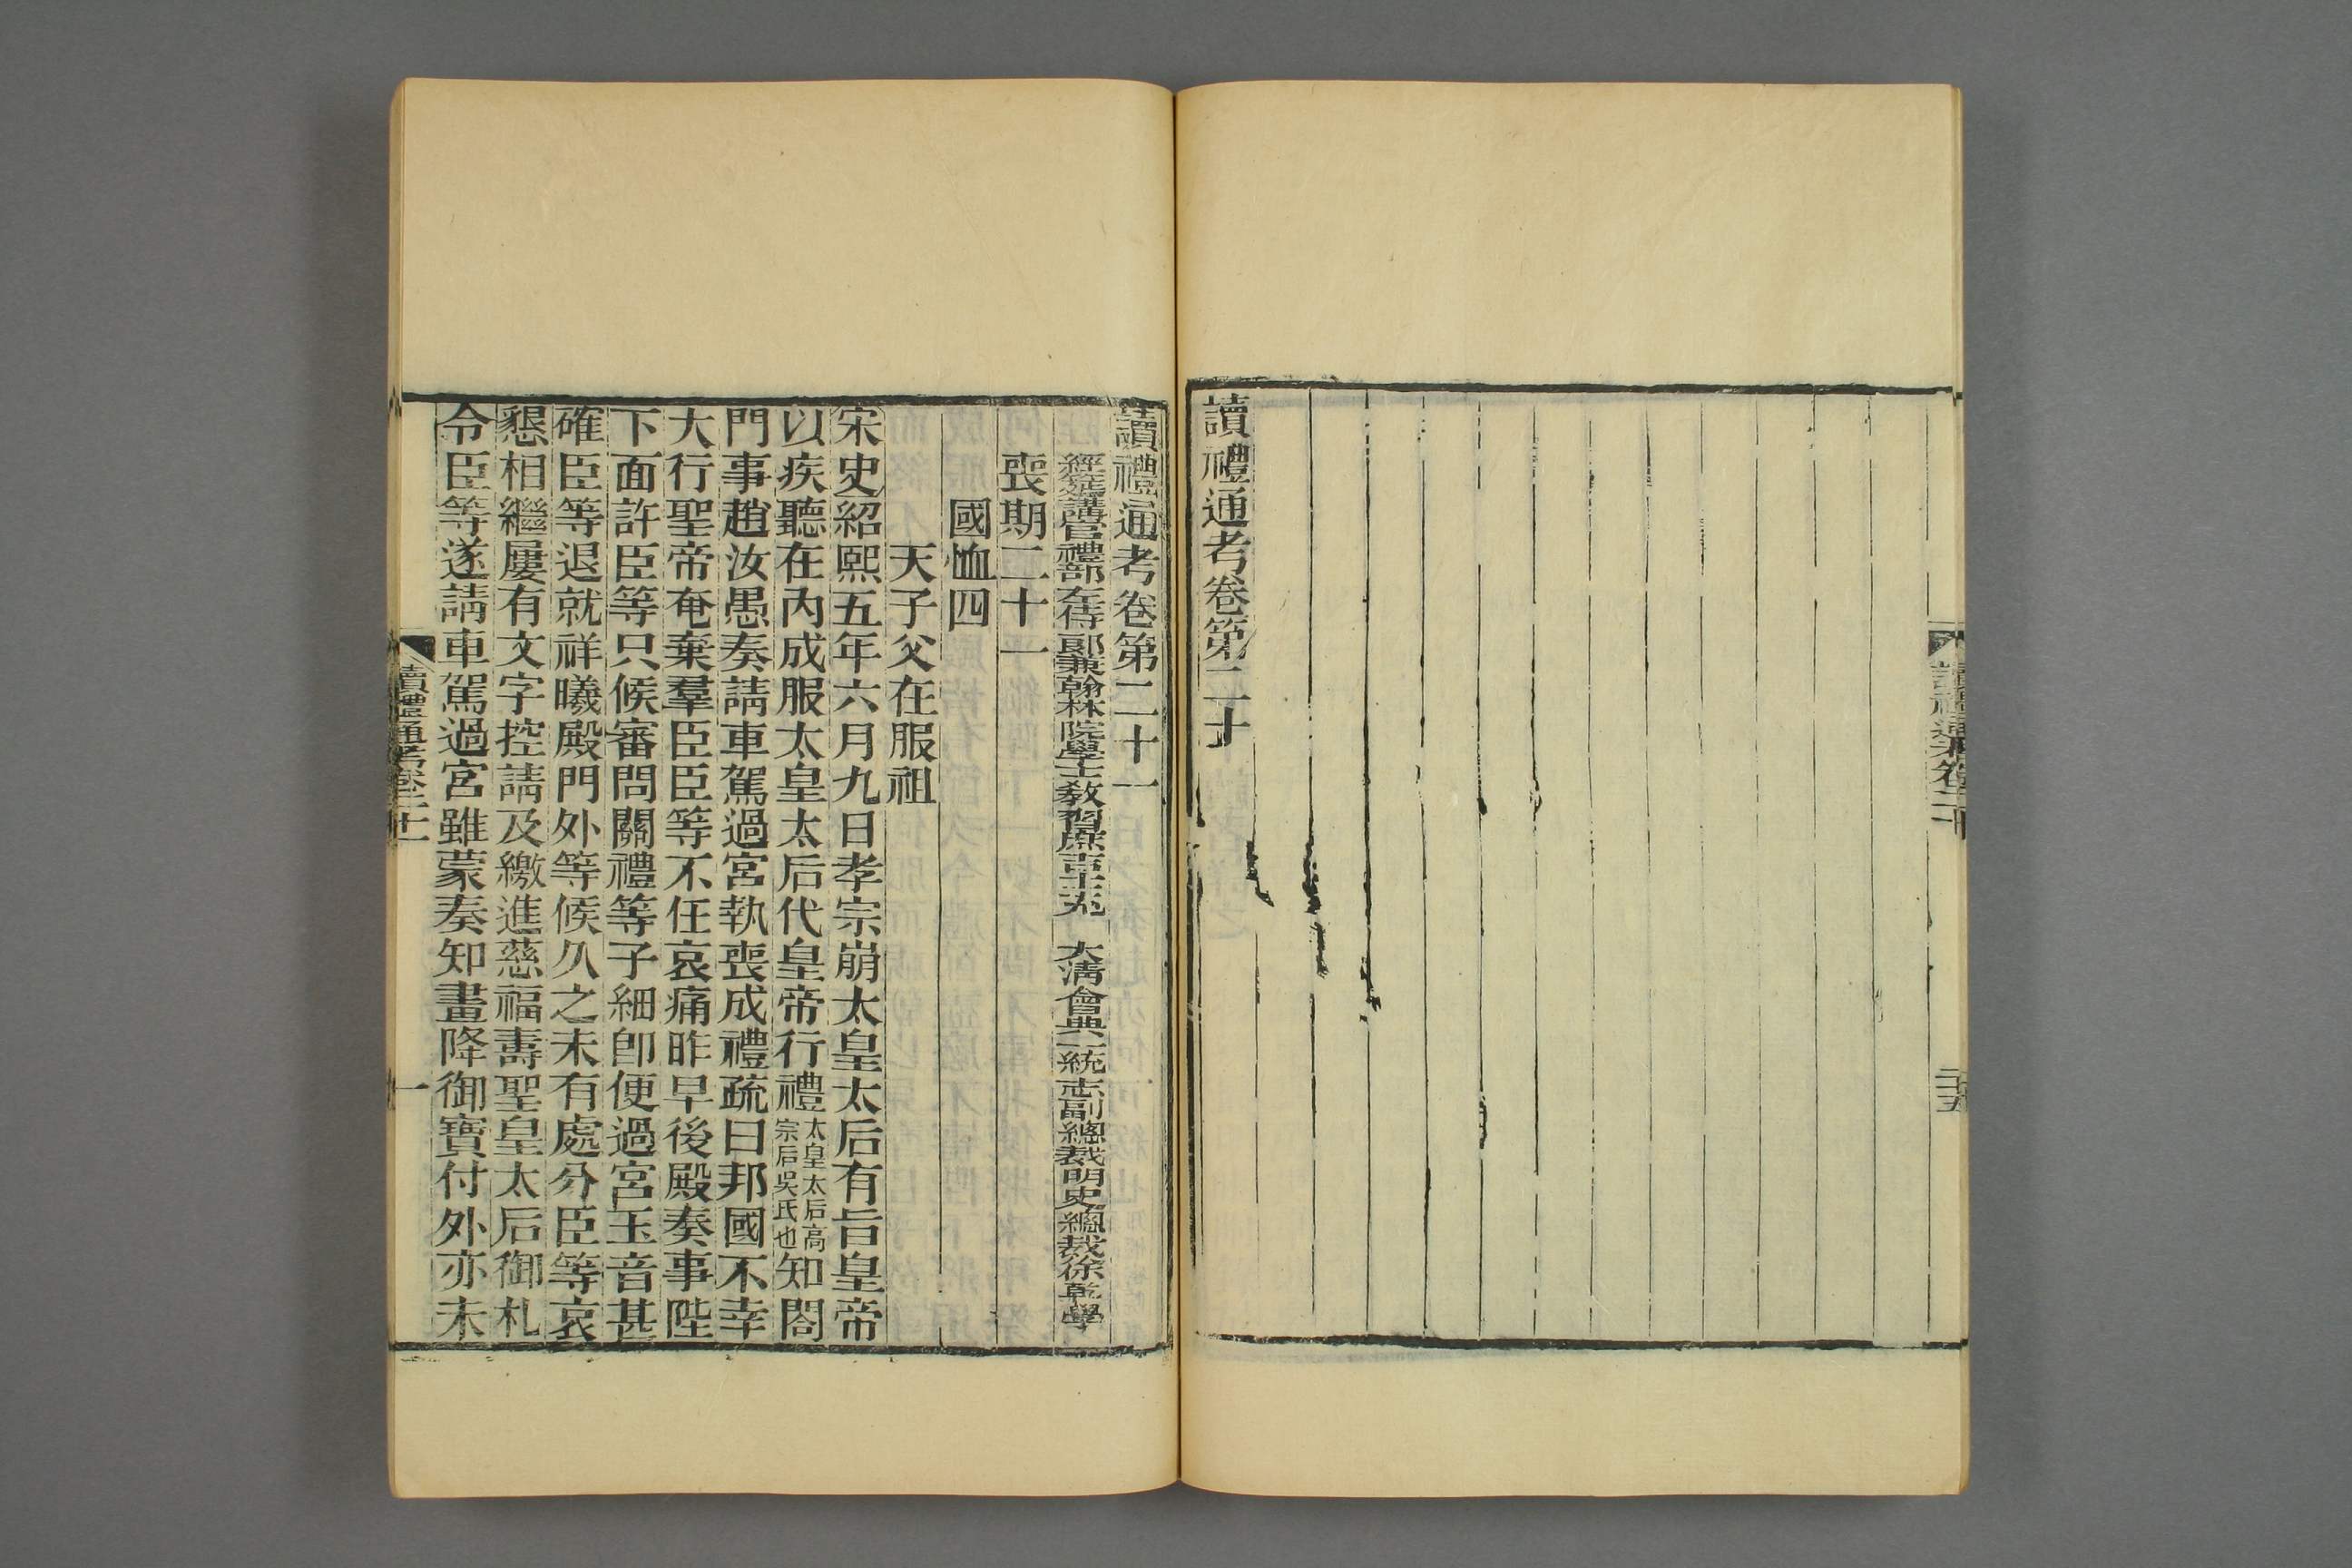 讀禮通考卷二十
二十五
讀禮通考卷第二十
讀禮通考卷第二十一
經筵講官禮部左侍郎兼翰林院學士教習庶吉士充 大淸會典一統志副總裁明史總裁徐乾學
喪期二十一
國恤四
天子父在服祖
宋史紹熙五年六月九日孝宗崩太皇太后有旨皇帝
以疾聽在內成服太皇太后代皇帝行禮太皇太后高宗后吳氏也知閤
門事趙汝愚奏請車駕過宮執喪成禮疏曰邦國不幸
大行聖帝奄棄羣臣臣等不任哀痛昨早後殿奏事陛
下面許臣等只候審問關禮等子細卽便過宮玉音甚
確臣等退就祥曦殿門外等候久之未有處分臣等哀
懇相繼屢有文字控請及繳進慈福壽聖皇太后御札
令臣等遂請車駕過宮雖蒙奏知畫降御寶付外亦未
讀禮通考卷二十一
一